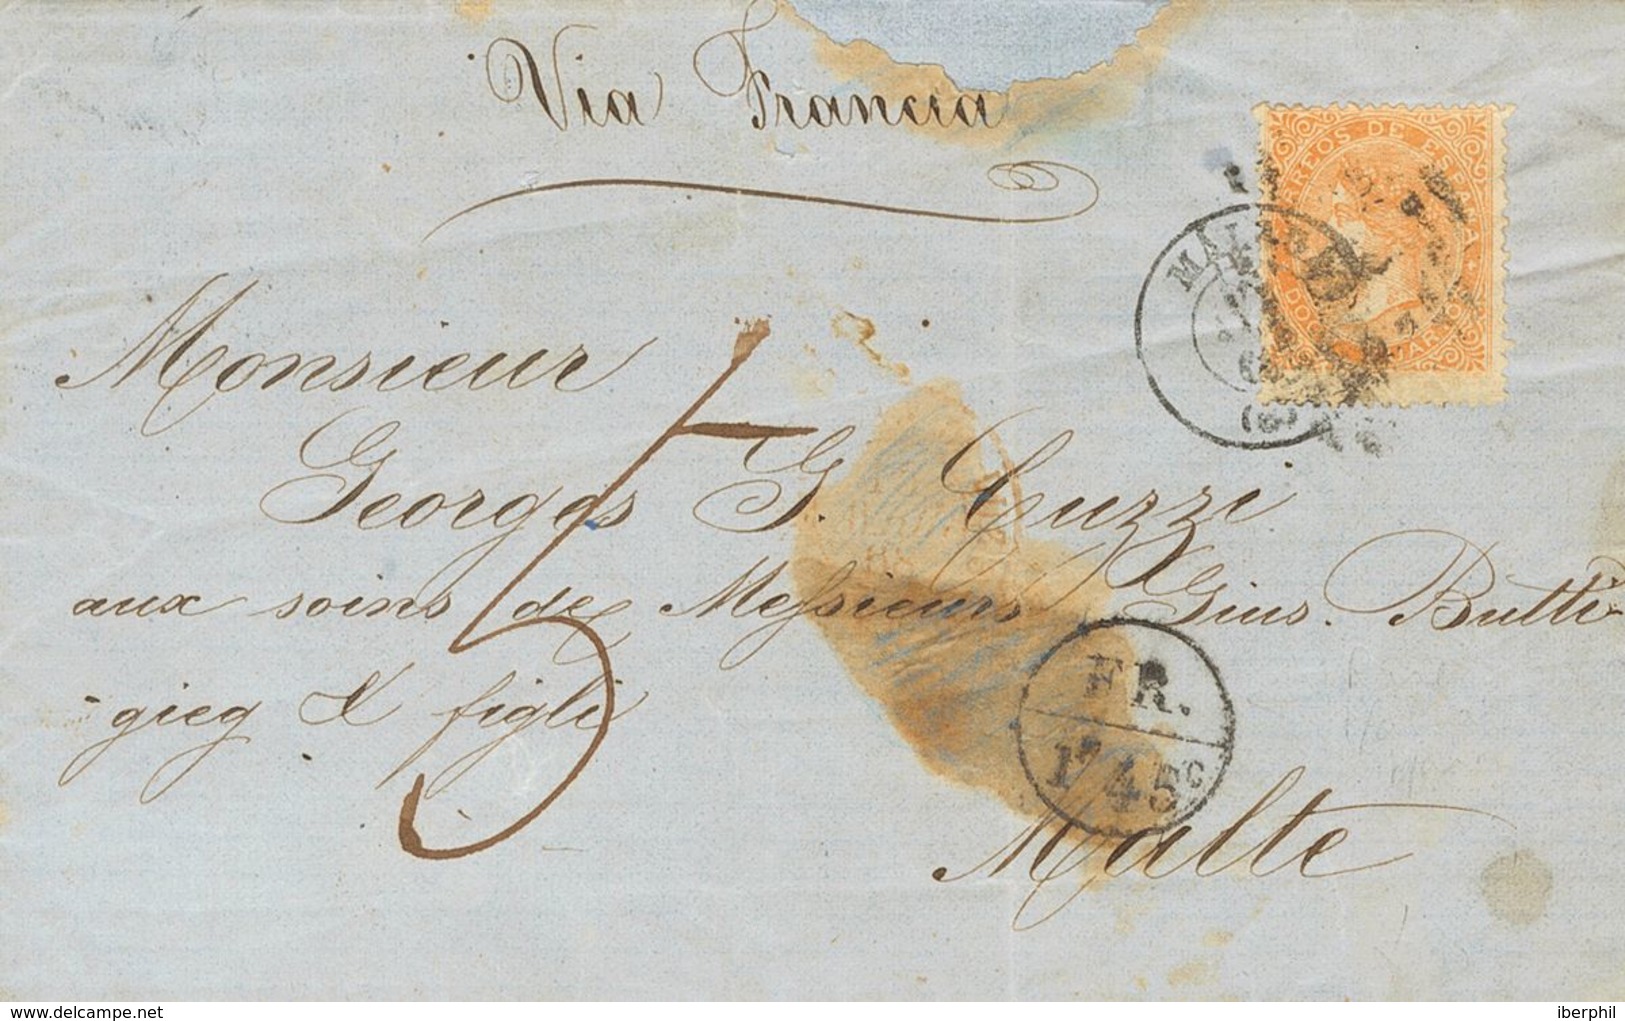 Via Francia
CORREOS DE ESPAÑA
MALAGA
Monsieur
Georges G. Cuzzi
aux soins de Messieurs Gius. Butti-
-gieg & figli
5
FR.
1F 45c
Malte
www.delcampe.net
iberphil